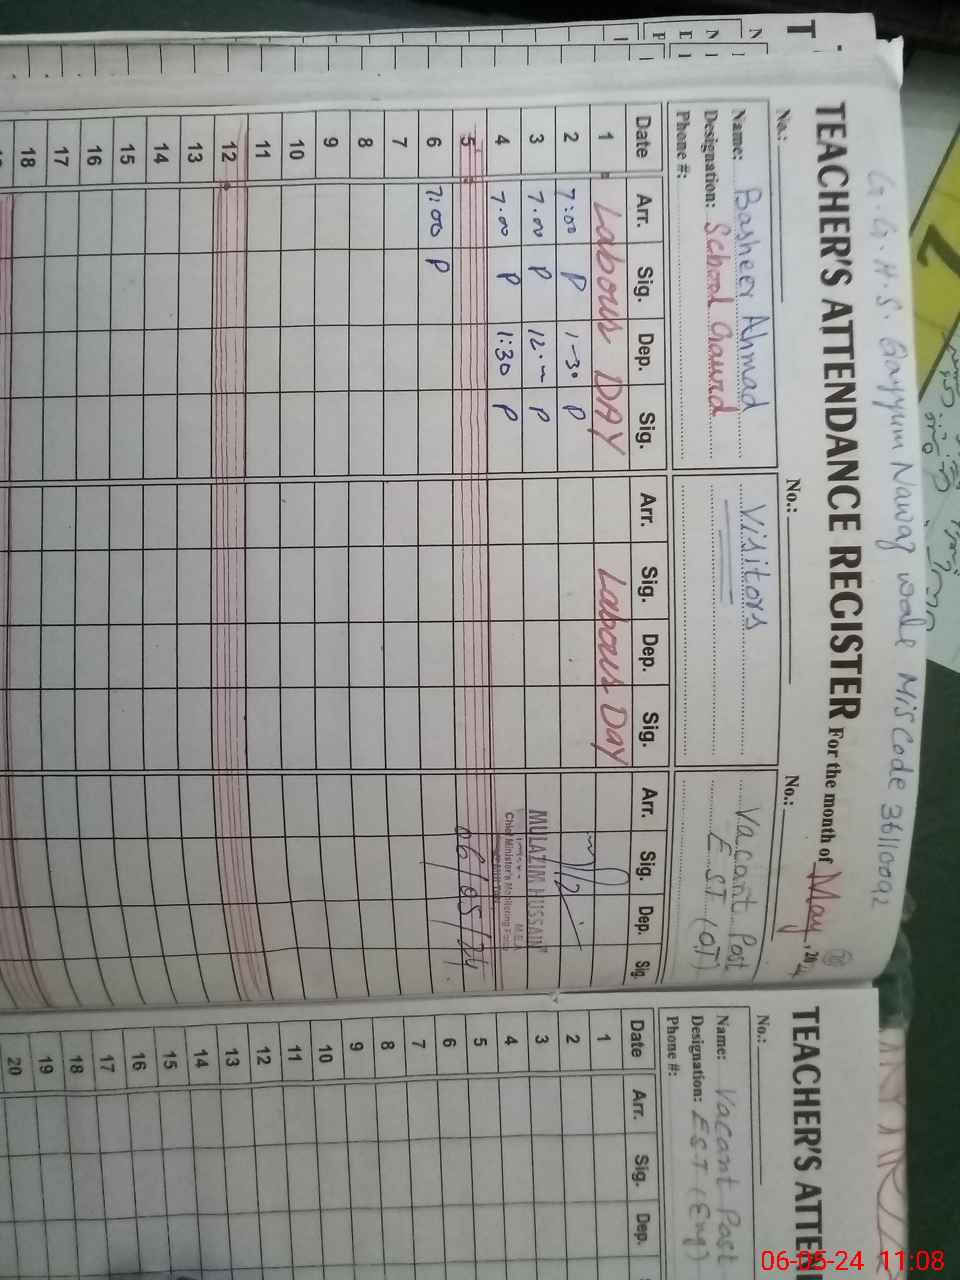 G.G.H.S. Qayyum Nawaz wala MIS Code 36110092
TEACHER'S ATTENDANCE REGISTER For the month of May, 2024
No.: No.: No.:
Name: Basheer Ahmad
Designation: School Gaurd
Phone #:
Visitors
Vacant Post
E.S.T (OT)
Date Arr. Sig. Dep. Sig. Arr. Sig. Dep. Sig. Arr. Sig. Dep. Sig.
1 Labour DAY Labour Day
2 7:00 P 1-30 P
3 7.00 P 12.00 P
4 7.00 P 1:30 P
5
6 7:00 P
7
8
9
10
11
12
13
14
15
16
17
18
MULAZIM HUSSAIN
M.E.A
Chief Minister's Monitoring Force
06/05/24
TEACHER'S ATTE
No.:
Name: Vacant Post
Designation: EST (Eng)
Phone #:
Date Arr. Sig. Dep.
1
2
3
4
5
6
7
8
9
10
11
12
13
14
15
16
17
18
19
20
06-05-24 11:08